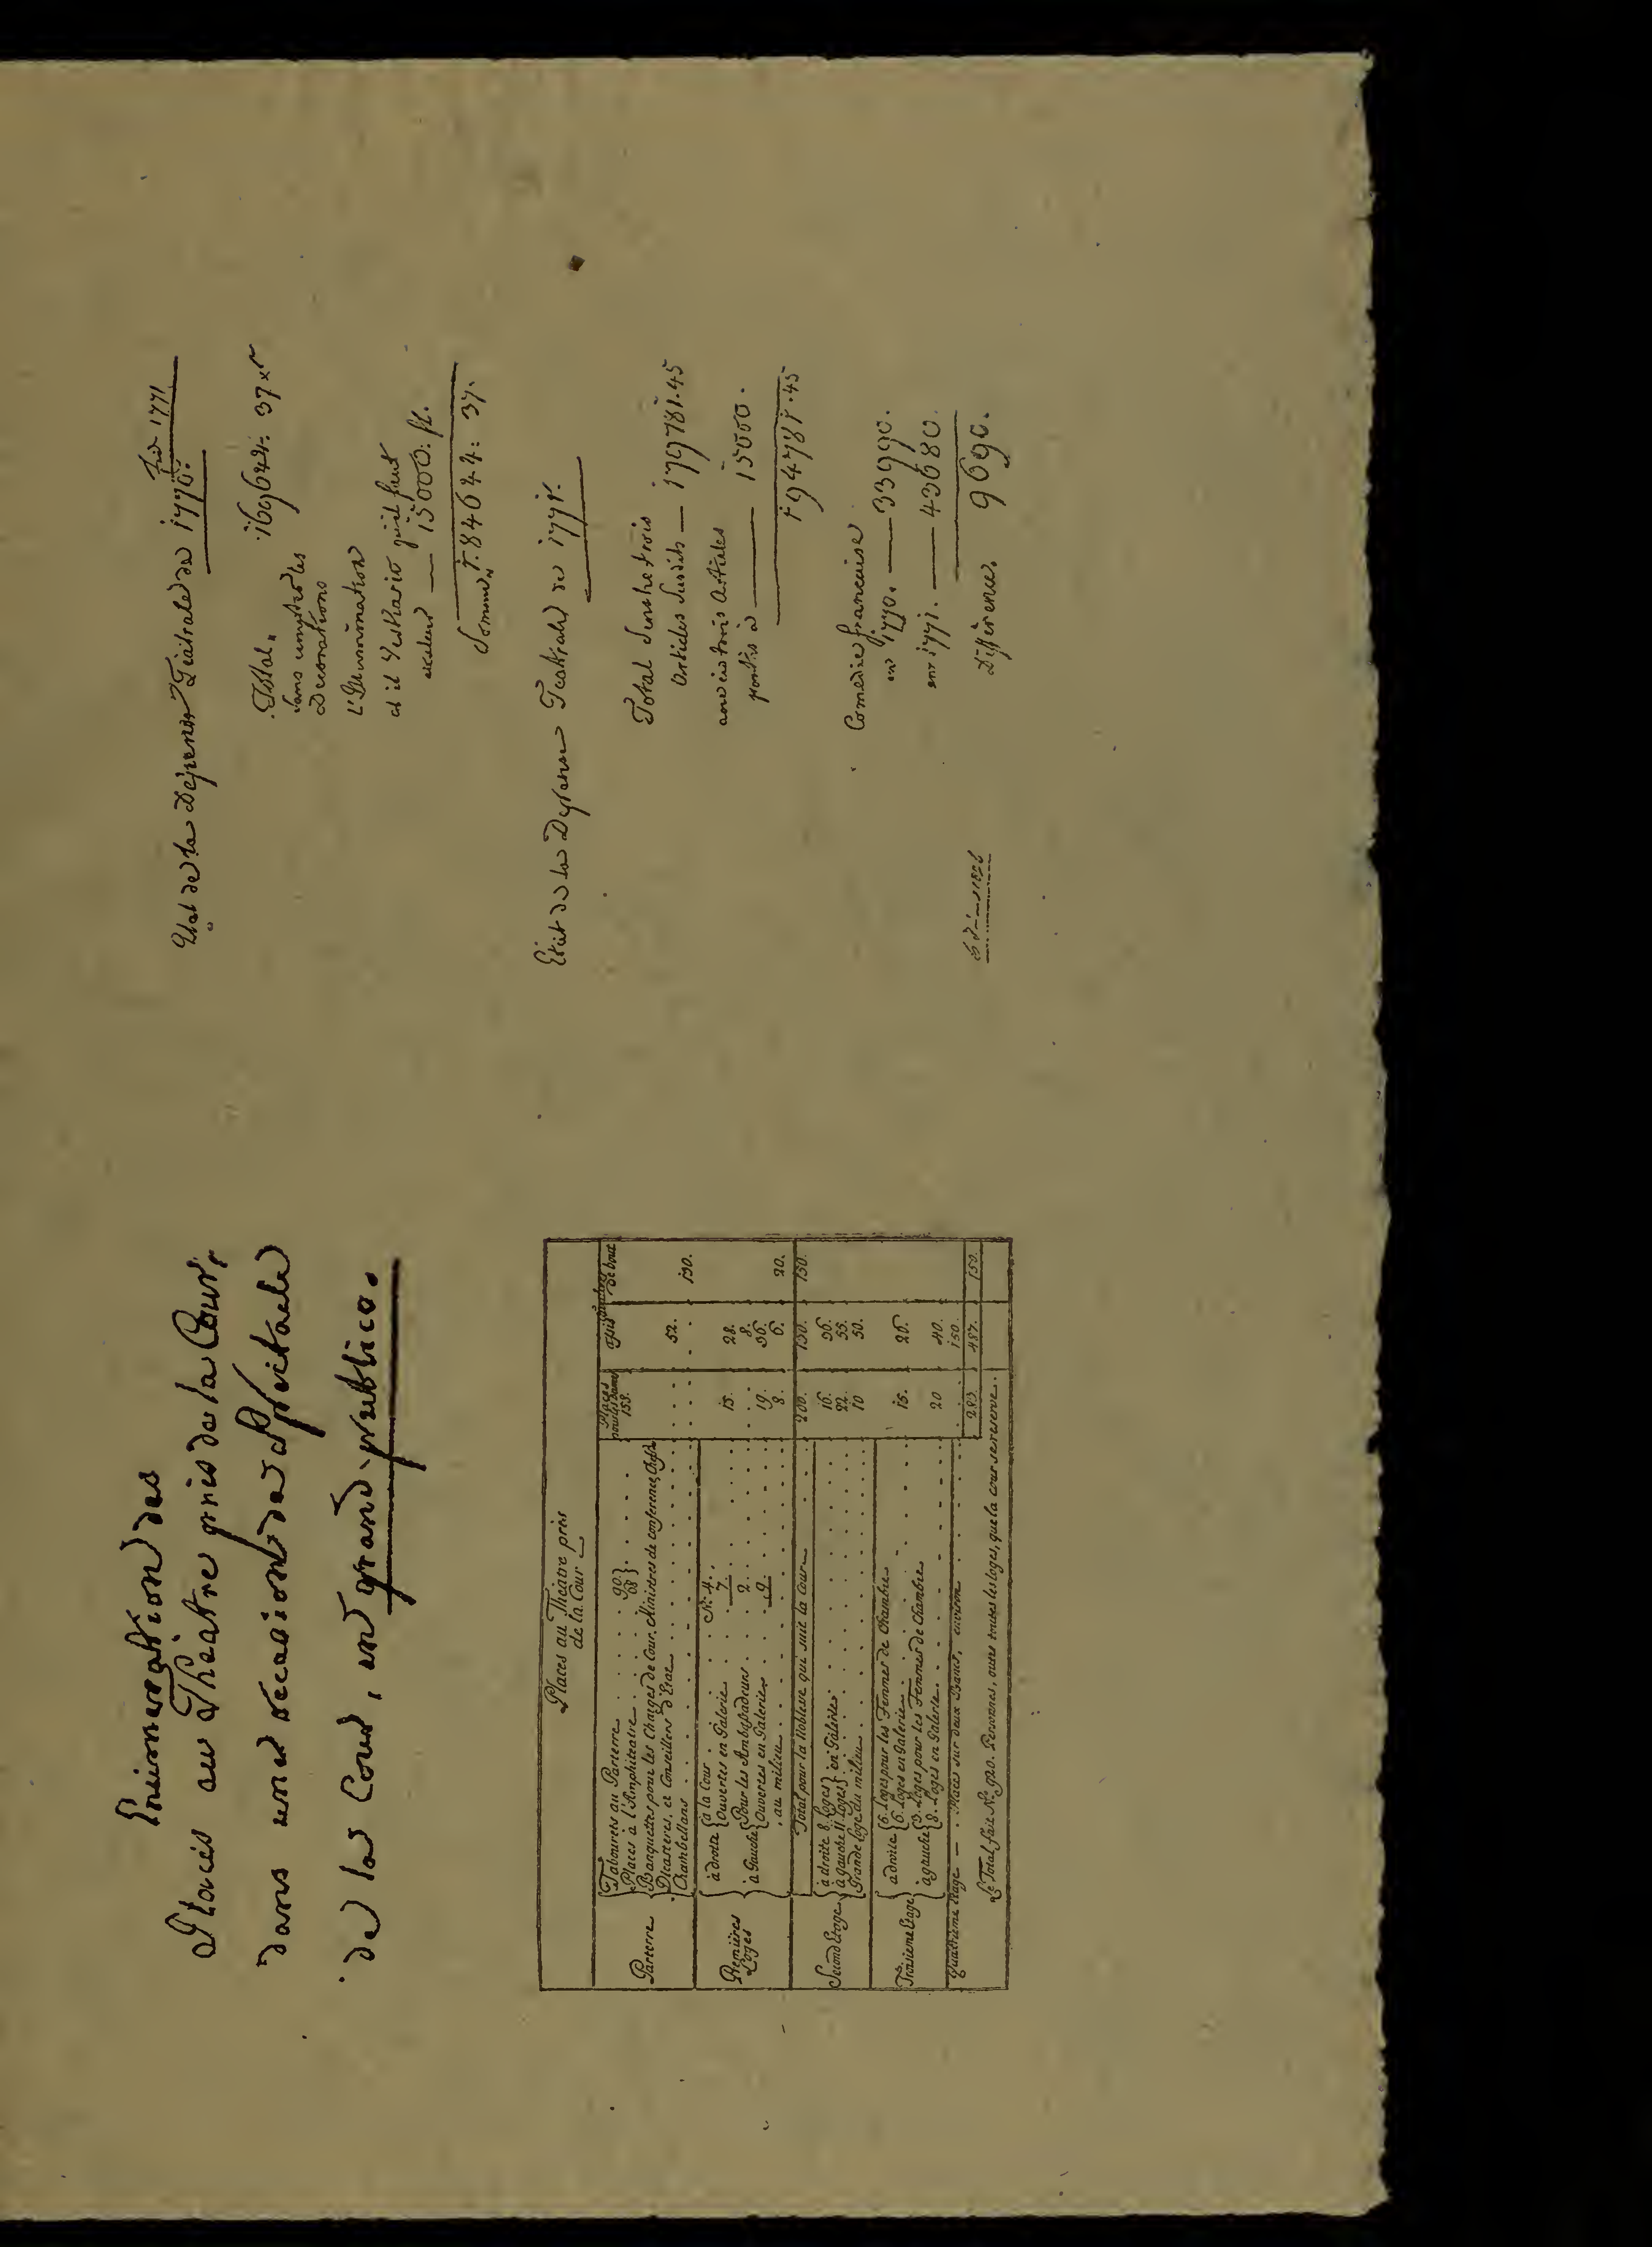 Enumeration des
Places au Théatre près de la Cour,
dans une occasion de Spectacle
de la Cour, en grand publico.
Places au Théatre près
de la Cour
Places pour les Dames
debout
Parterre
Tabourets au Parterre 90.
Places à l'Amphiteatre 68 153.
Banquettes pour les Charges de Cour, Ministres de conference, Chefs
Dicasteres, et Conseillers d'Etat 52.
Chambellans 130.
Premières Loges
à droite à la Cour N. 4.
Ouvertes en Galerie 7 15. 28.
à Gauche Pour les Ambassadeurs 2 8.
Ouvertes en Galeries 9. 19. 36.
au milieu 8. 6. 20.
Total pour la Noblesse qui suit la Cour 200. 130. 150.
Second Etage
à droite 8. Loges en Galeries 16. 36.
à gauche 11. Loges 22. 55.
Grande Loge du milieu 10 50.
Troisieme Etage
à droite 6. Loges pour les Femmes de Chambre
6. Loges en Galerie 15. 26.
à gauche 3. Loges pour les Femmes de Chambre
8. Loges en Galerie 20 40.
Quatrieme Etage — Places sur deux Bancs, environ 150.
283. 487. 150.
Le Total fait N.º 920. Personnes, outre toutes les loges, que la cour se reserve.
Etat de la Dépense Téatrale de 1770.
1771
Total
169644: 37 xr
sans compter les
Decorations
L'Illumination
et il Vestiario qu'il faut
15000: fl.
Somma 184644: 37.
Etat de la Depense Teatrale de 1771.
Total sur les trois
Articles susdits — 179781.45
trois Articles
portés à — 15000.
194781.45
Comedie francaise
en 1770. — 33990.
en 1771. — 43680.
Différence. 9690.